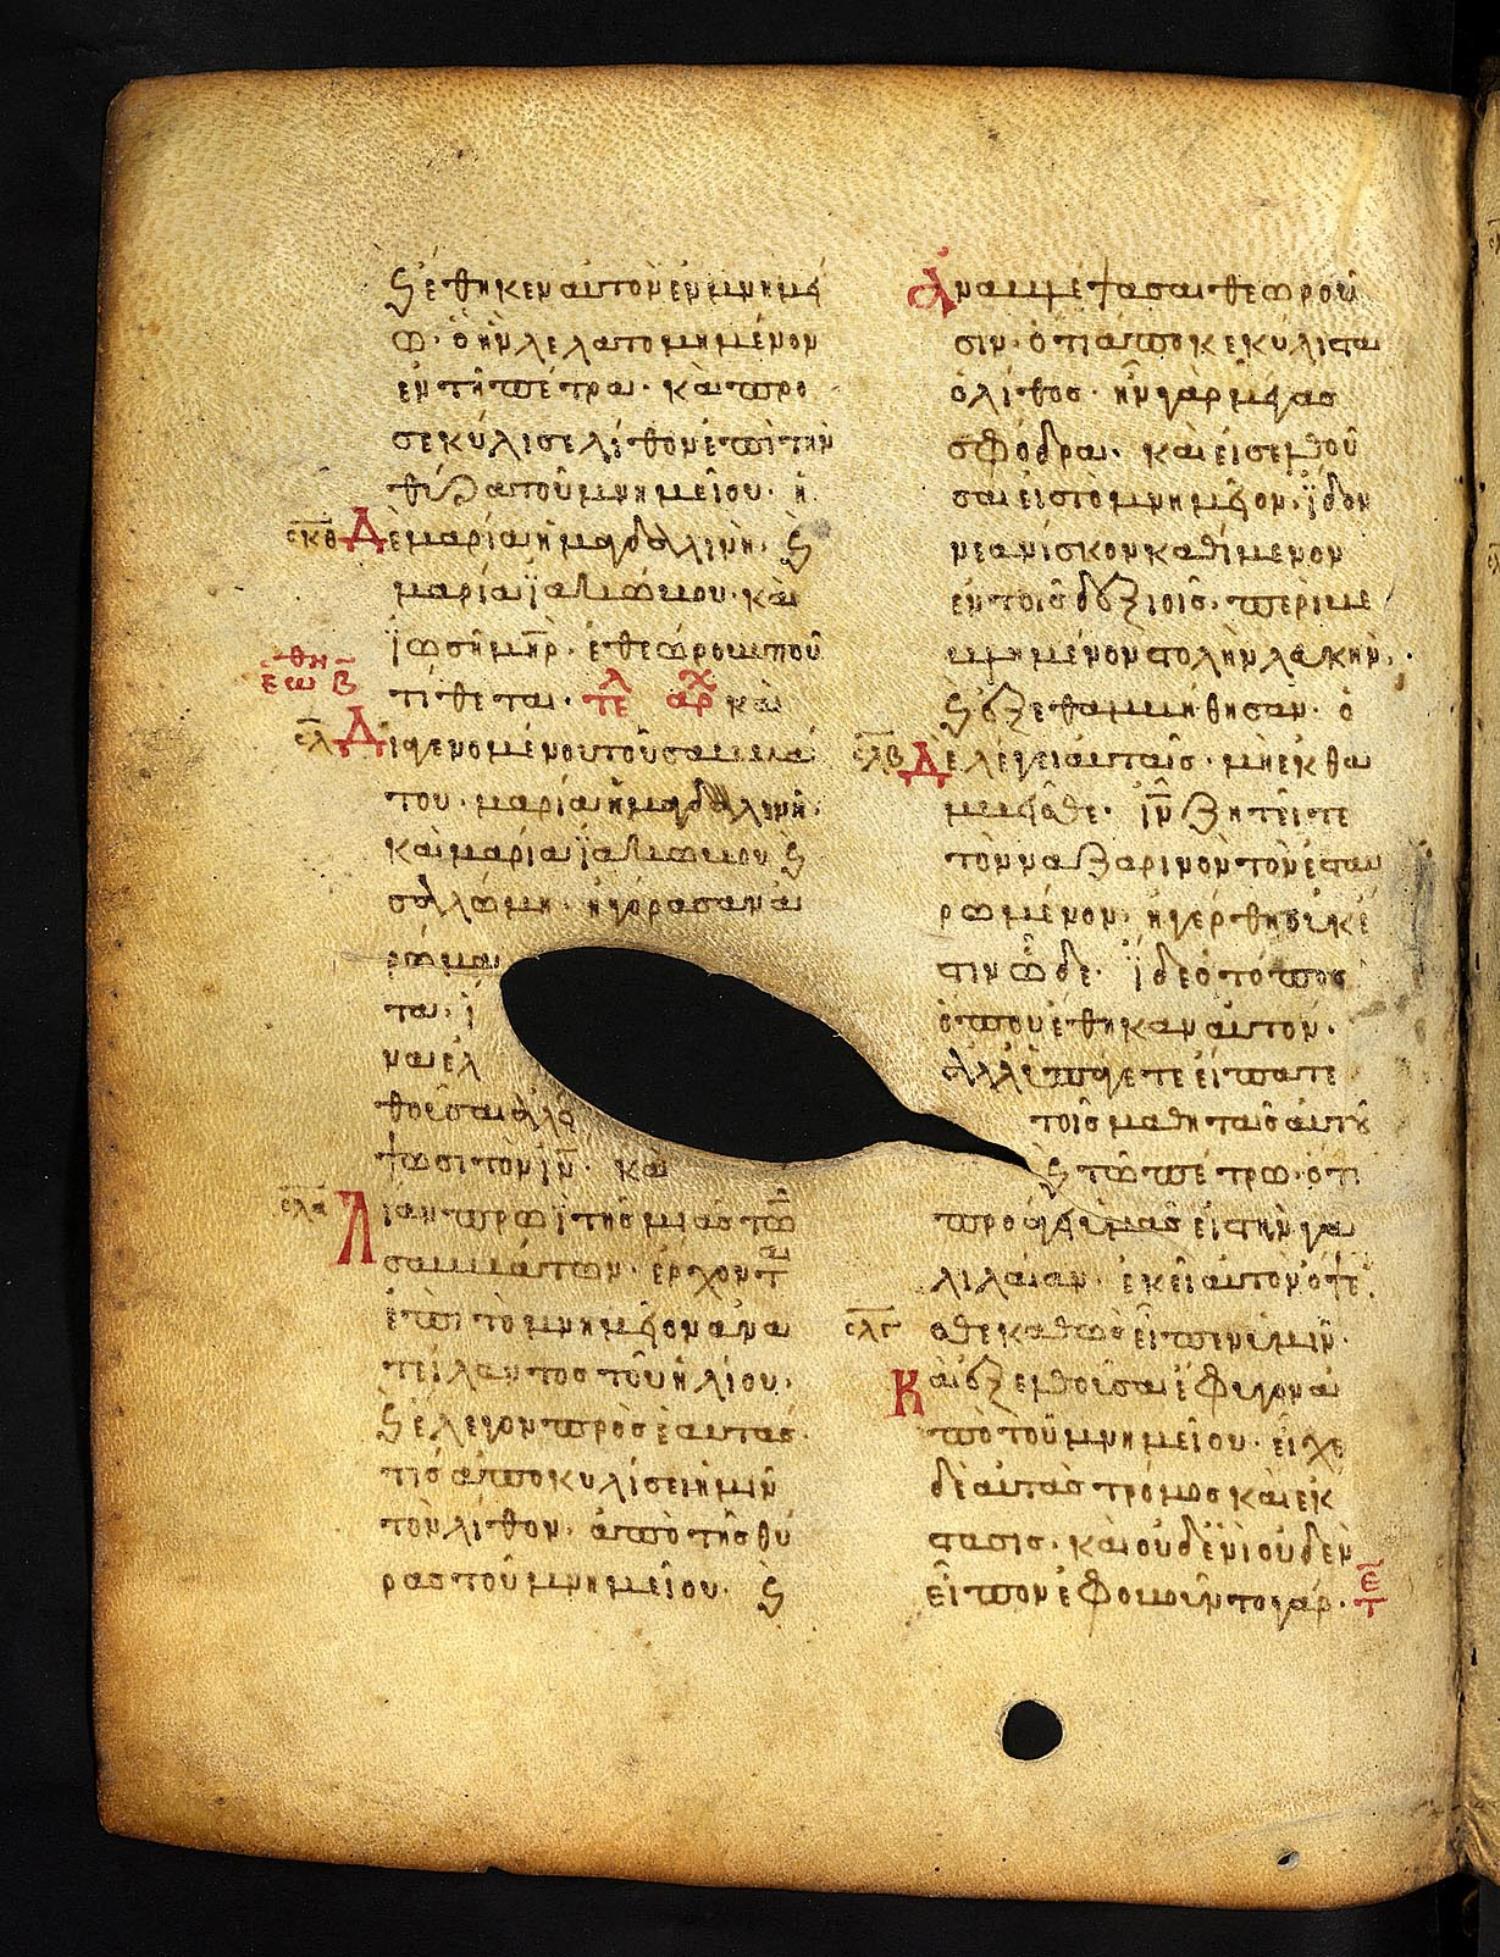 ϗ ἔθηκεν αυτὸν ἐν μνημεί
ω· ὃ ἦν λελατομημένον
ἐν τῇ πέτρα· καὶ προ
σεκύλισε λίθον ἐπὶ τὴν
θύραν τοῦ μνημείου· ἡ
σκθ Δὲ μαρία ἡ μαγδαλινὴ· ϗ
μαρία ϊακώβου· καὶ
ϊωσῆ μηρ· ἐθεώρουν ποῦ
εωθι β
τίθεται· τελ αρχ καὶ
σλ Διαγενομένου τοῦ σαββά
του· μαρία ἡ μαγδαλινὴ·
καὶ μαρία ϊακώβου ϗ
σαλώμη· ἠγόρασαν ἀ
ρώμα
τα· ἵ
να ἐλ
θοῦσαι ἀλεί
ψωσι τὸν ιν· καὶ
σλα Λίαν πρωῒ τῆς μιᾶς τῶν
σαββάτων· ἔρχονται
ἐπὶ τὸ μνημεῖον ἀνα
τείλαντος τοῦ ἡλίου·
ϗ ἔλεγον πρὸς ἑαυτάς·
τίς ἀποκυλίσει ἡμῖν
τὸν λίθον· ἀπὸ τῆς θύ
ρας τοῦ μνημείου· ϗ
Ἀναβλέψασαι θεωροῦ
σιν· ὅτι ἀποκεκύλισται
ὁ λίθος· ἦν γὰρ μέγας
σφόδρα· καὶ εἰσελθοῦ
σαι εἰς τὸ μνημεῖον· ϊδον
νεανίσκον καθίμενον
ἐν τοῖς δεξιοῖς· περιβε
βλημένον στολὴν λευκήν·
ϗ ἐξεθαμβήθησαν· ὁ
σλβ Δὲ λέγει αυταῖς· μὴ ἐκθα
μβεῖσθε· ιν ζητεῖτε
τὸν ναζαρινὸν τὸν ἐσταυ
ρωμένον· ἠγέρθη οὐκ ἔ
στιν ὧδε· ϊδε ὁ τόπος
ὅπου ἔθηκαν αυτον·
ἀλλ ὑπάγετε εἴπατε
τοῖς μαθηταῖς αὐτοῦ
ϗ τῶ πέτρω· ὅτι
προάγει ὑμᾶς εἰς τὴν γα
λιλαίαν· ἐκεῖ αυτὸν ὄψε
σλγ σθε καθὼς εἶπεν ὑμῖν·
Καὶ ἐξελθοῦσαι ἔφυγον ἀ
πὸ τοῦ μνημείου· εἶχε
δὲ αὐτὰς τρόμος καὶ ἔκ
στασις· καὶ οὐδενὶ οὐδὲν
εἶπον ἐφοβοῦντο γάρ· τε